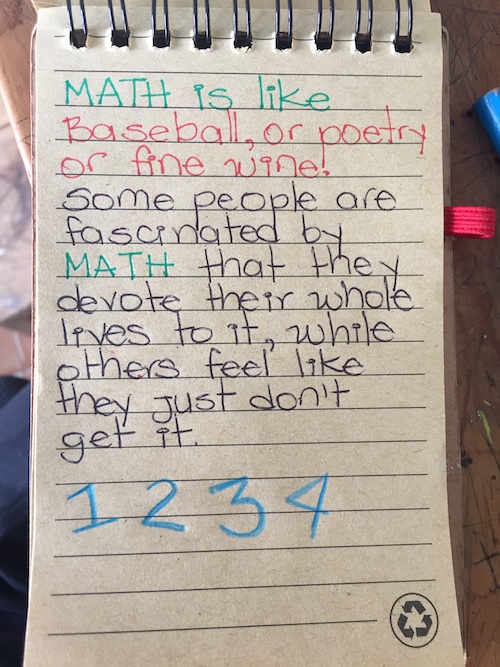 MATH is like
Baseball, or poetry
or fine wine!
Some people are
fascinated by
MATH that they
devote their whole
lives to it, while
others feel like
they just don't
get it.
1 2 3 4